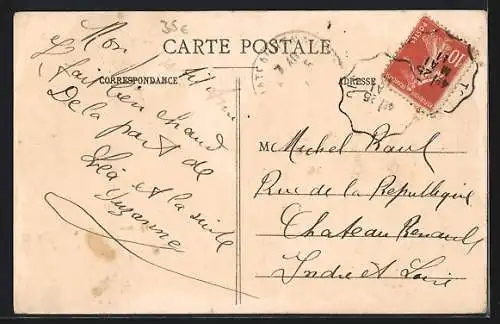 35€
CARTE POSTALE
CORRESPONDANCE
ADRESSE
Mon
fait bien chaud
De la part de
Léa et la suite
Suzanne
M Michel Raoul
Rue de la Republique
Chateau Renault
Indre et Loire
10